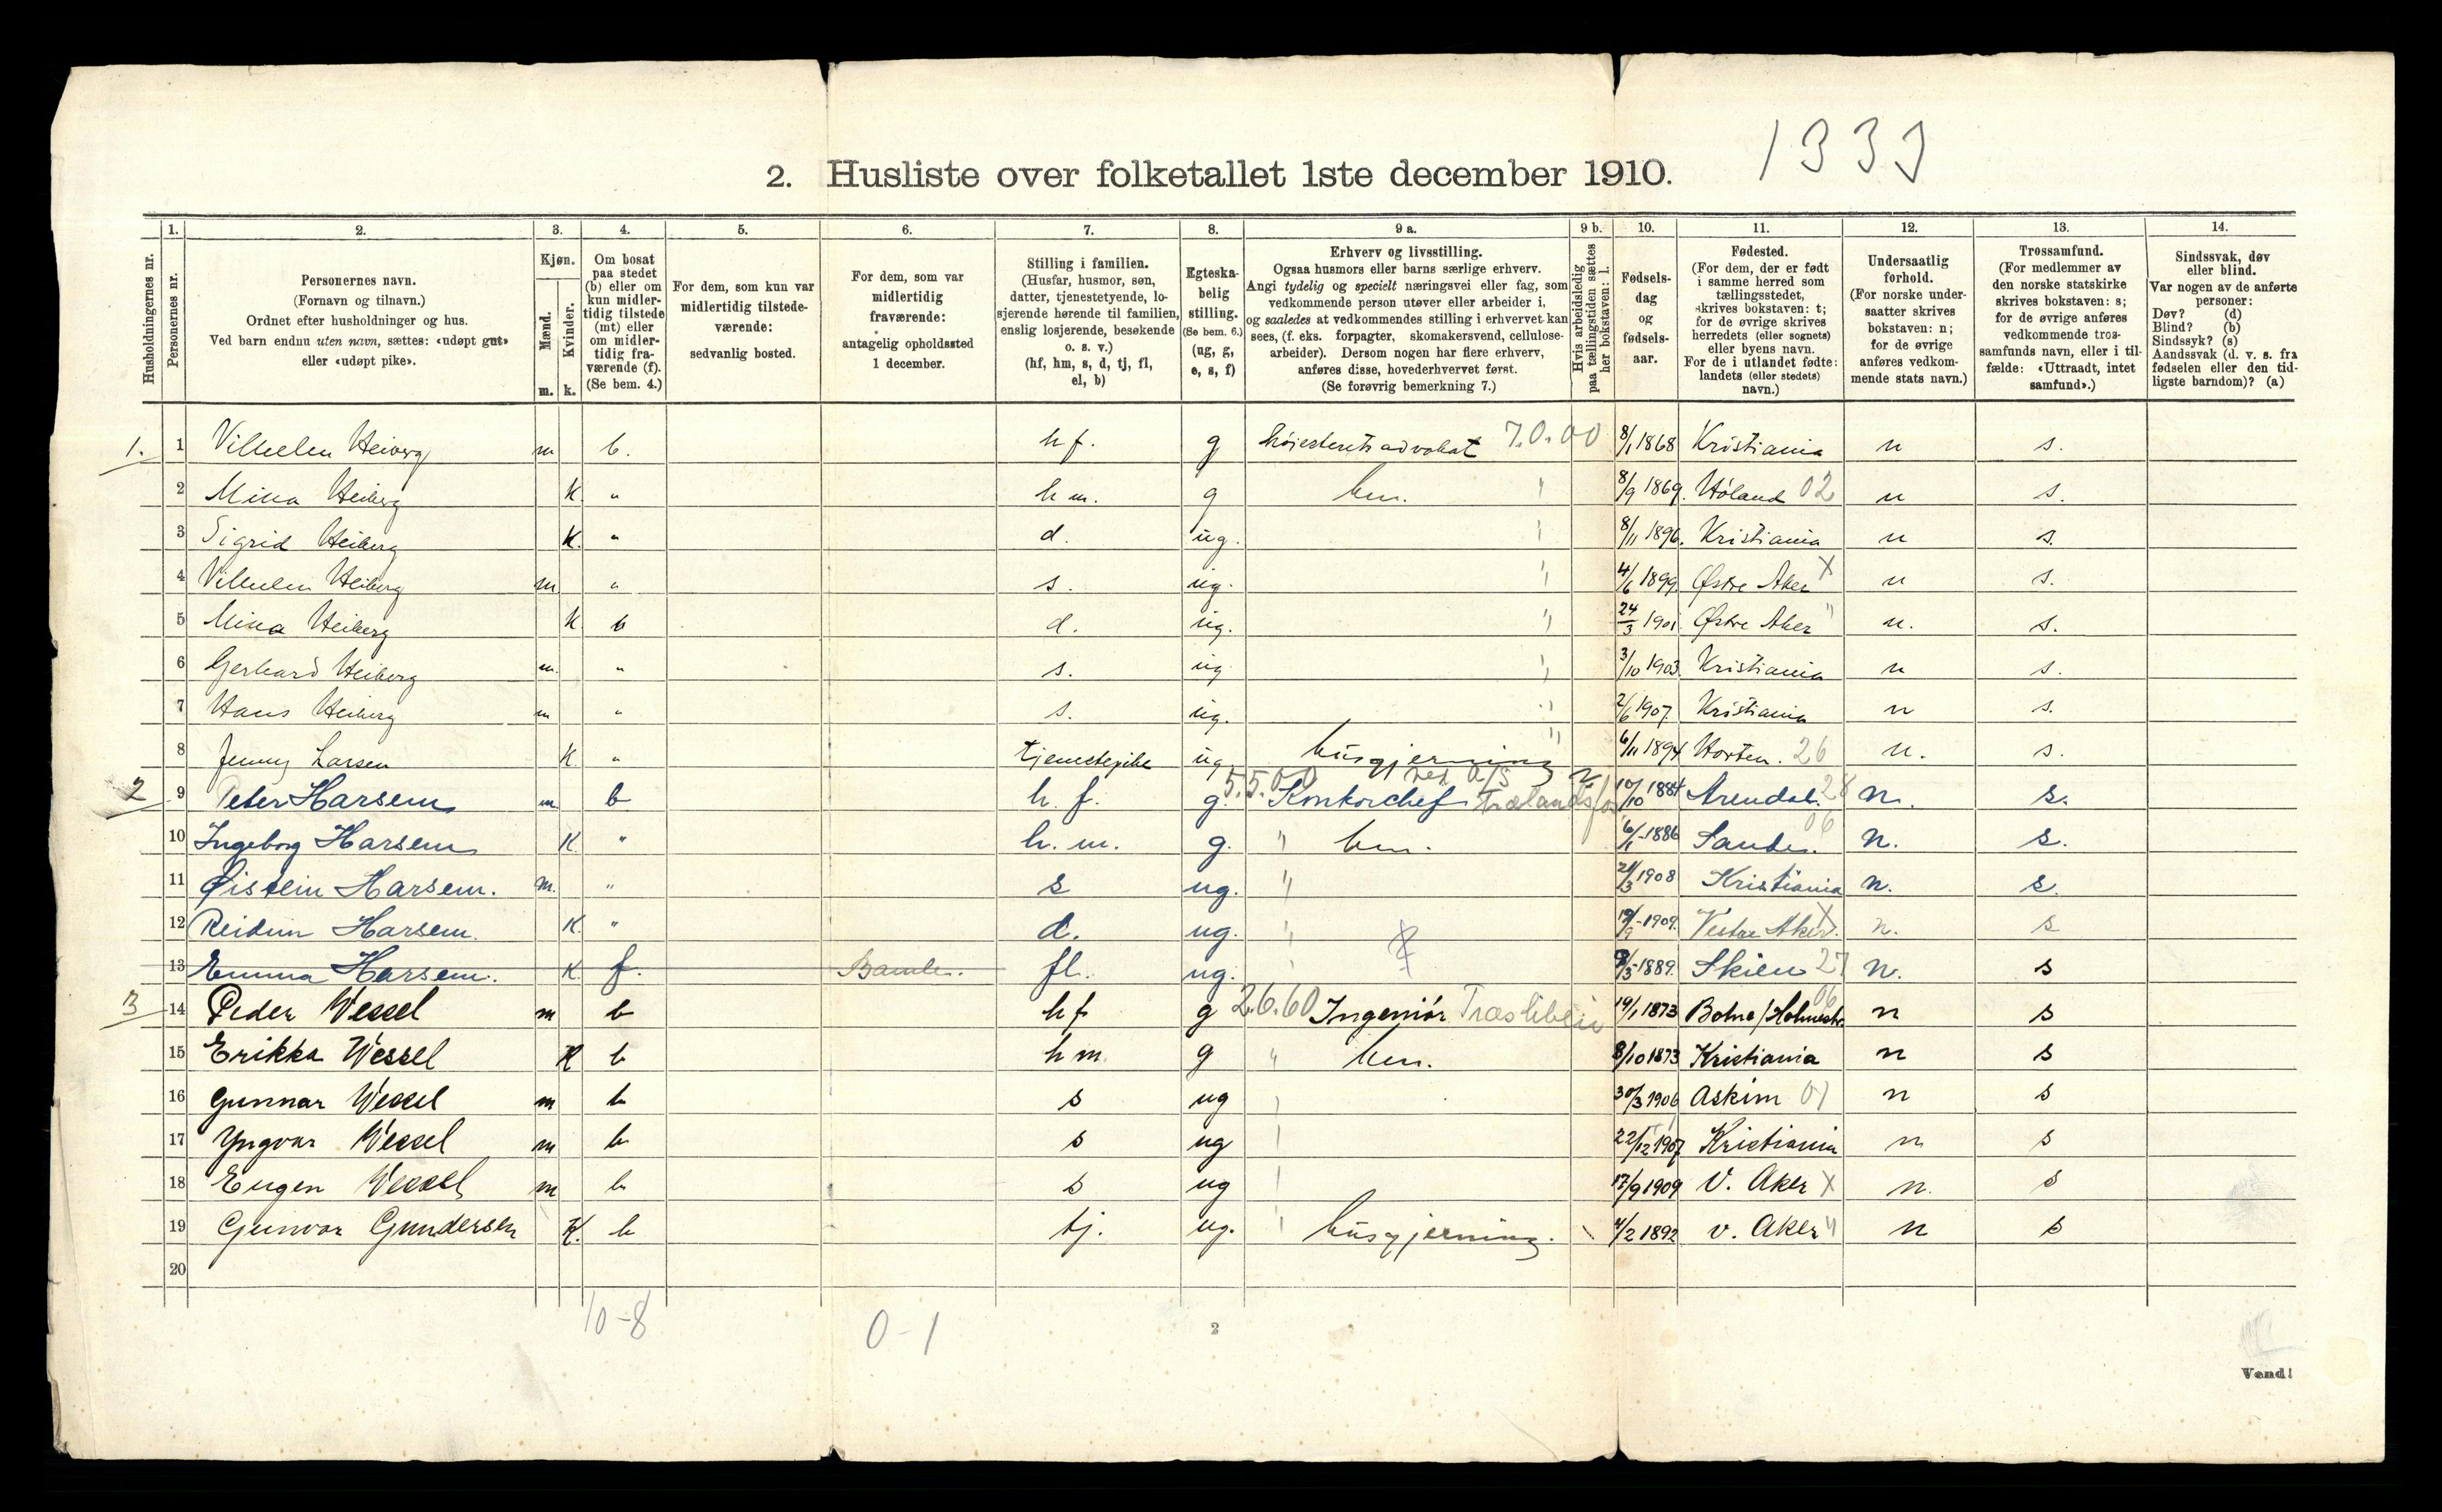 1333
2. Husliste over folketallet 1ste december 1910.
1. 2. 3. 4. 5. 6. 7. 8. 9 a. 9 b. 10. 11. 12. 13. 14.
Husholdningernes nr.
Personernes nr.
Personernes navn.
(Fornavn og tilnavn.)
Ordnet efter husholdninger og hus.
Ved barn endnu uten navn, sættes: «udøpt gut»
eller «udøpt pike».
Kjøn.
Mænd.
m.
Kvinder.
k.
Om bosat
paa stedet
(b) eller om
kun midler-
tidig tilstede
(mt) eller
om midler-
tidig fra-
værende (f).
(Se bem. 4.)
For dem, som kun var
midlertidig tilstede-
værende:
sedvanlig bosted.
For dem, som var
midlertidig
fraværende:
antagelig opholdssted
1 december.
Stilling i familien.
(Husfar, husmor, søn,
datter, tjenestetyende, lo-
sjerende hørende til familien,
enslig losjerende, besøkende
o. s. v.)
(hf, hm, s, d, tj, fl,
el, b)
Egteska-
belig
stilling.
(Se bem. 6.)
(ug, g,
e, s, f)
Erhverv og livsstilling.
Ogsaa husmors eller barns særlige erhverv.
Angi tydelig og specielt næringsvei eller fag, som
vedkommende person utøver eller arbeider i,
og saaledes at vedkommendes stilling i erhvervet kan
sees, (f. eks. forpagter, skomakersvend, cellulose-
arbeider). Dersom nogen har flere erhverv,
anføres disse, hovederhvervet først.
(Se forøvrig bemerkning 7.)
Hvis arbeidsledig
paa tællingstiden sættes
her bokstaven: l.
Fødsels-
dag
og
fødsels-
aar.
Fødested.
(For dem, der er født
i samme herred som
tællingsstedet,
skrives bokstaven: t;
for de øvrige skrives
herredets (eller sognets)
eller byens navn.
For de i utlandet fødte:
landets (eller stedets)
navn.)
Undersaatlig
forhold.
(For norske under-
saatter skrives
bokstaven: n;
for de øvrige
anføres vedkom-
mende stats navn.)
Trossamfund.
(For medlemmer av
den norske statskirke
skrives bokstaven: s;
for de øvrige anføres
vedkommende tros-
samfunds navn, eller i til-
fælde: «Uttraadt, intet
samfund».)
Sindssvak, døv
eller blind.
Var nogen av de anførte
personer:
Døv? (d)
Blind? (b)
Sindssyk? (s)
Aandssvak (d. v. s. fra
fødselen eller den tid-
ligste barndom)? (a)
1. 1 Vilhelm Heiberg m b. hf. g høiesteretsadvokat 7.0.00 8/1 1868 Kristiania n s.
2 Mina Heiberg K. " hm. g hm. " 8/9 1869. Høland 02 n s.
3 Sigrid Heiberg K. " d. ug. " 8/11 1896. Kristiania n s.
4 Vilhelm Heiberg m " s. ug. " 4/6 1899. Østre Aker X n s.
5 Mina Heiberg K b d. ug. " 24/3 1901 Østre Aker " n. s.
6 Gerhard Heiberg m. " s. ug " 3/10 1903. Kristiania n s.
7 Hans Heiberg m " s. ug. " 2/6 1907. Kristiania n s.
8 Jenny Larsen K. " tjenestepike ug husgjerning " 6/11 1894 Horten. 26 n. s.
2 9 Peter Harsem m b h. f. g. 5.5.00 Kontorchef ved A/S Trælandsfos 10/10 1884 Arendal. 28 n. s.
10 Ingeborg Harsem K. " h. m. g. " hm. 6/1-1886 Sande. 06 n. s.
11 Øistein Harsem. m. " s ug. " 21/3 1908 Kristiania n. s.
12 Reidun Harsem. K. " d. ug. " 19/9-1909. Vestre Aker. X n. s
13 Emma Harsem. K. f. Bamle. fl. ug. " 9/5-1889. Skien 27 n. s
3 14 Peder Wessel m b hf g 2.6.60 Ingeniør Træsliberi 19/1 1873 Botne/Holmestr. 06 n s
15 Erikka Wessel K b hm. g " hm. 8/10 1873 Kristiania n s
16 Gunnar Wessel m b s ug " 30/3 1906 Askim 01 n s
17 Yngvar Wessel m b s ug " 22/12 1907 Kristiania n s
18 Eugen Wessel m b s ug " 17/9 1909 V. Aker X n. s
19 Gunvor Gundersen K. b tj. ug. " husgjerning. 4/2 1892 v. Aker " n s
20
10-8
0-1
2
Vend!